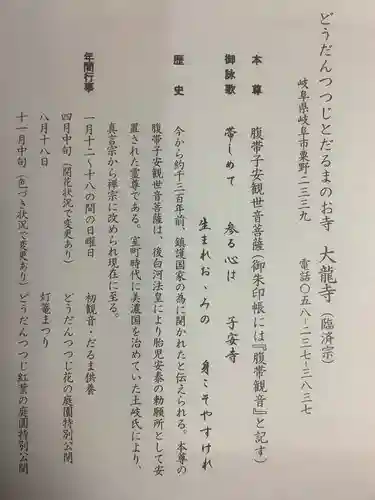 どうだんつつじとだるまのお寺　大龍寺（臨済宗）
岐阜県岐阜市粟野二三三九　電話〇五八ー二三七ー三八三七
本　尊　腹帯子安観世音菩薩（御朱印帳には『腹帯観音』と記す）
御詠歌　帯しめて　参る心は　子安寺
生まれおゝみの　身こそやすけれ
歴　史　今から約千三百年前、鎮護国家の為に開かれたと伝えられる。本尊の
腹帯子安観世音菩薩は、後白河法皇により胎児安泰の勅願所として安
置された霊尊である。室町時代に美濃国を治めていた土岐氏により、
真言宗から禅宗に改められ現在に至る。
年間行事　一月十二～十八の間の日曜日　初観音・だるま供養
四月中旬（開花状況で変更あり）　どうだんつつじ花の庭園特別公開
八月十八日　灯篭まつり
十一月中旬（色づき状況で変更あり）どうだんつつじ紅葉の庭園特別公開